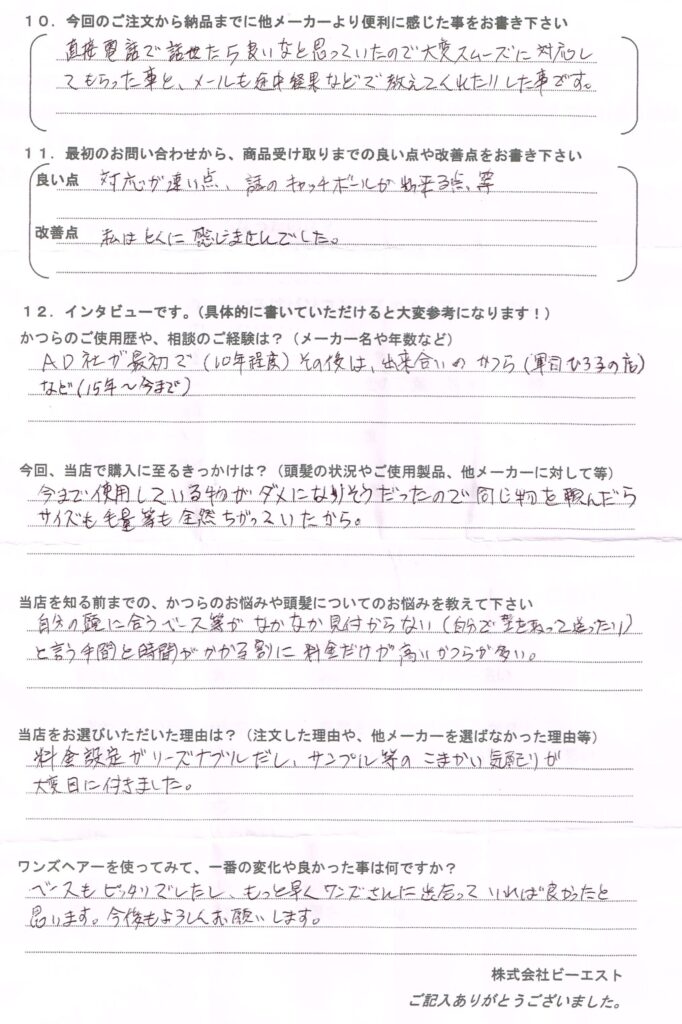 １０．今回のご注文から納品までに他メーカーより便利に感じた事をお書き下さい
直接電話で話せたら良いなと思っていたので大変スムーズに対応し
てもらった事と、メールも途中経果などで教えてくれたりした事です。
１１．最初のお問い合わせから、商品受け取りまでの良い点や改善点をお書き下さい
良い点 対応が速い点、話のキャッチボールが出来る点、等
改善点 私はとくに感じませんでした。
１２．インタビューです。（具体的に書いていただけると大変参考になります！）
かつらのご使用歴や、相談のご経験は？（メーカー名や年数など）
ＡＤ社が最初で（10年程度）その後は、出来合いの かつら（軍司ひろ子の店）
など（15年～今まで）
今回、当店で購入に至るきっかけは？（頭髪の状況やご使用製品、他メーカーに対して等）
今まで使用している物がダメになりそうだったので同じ物を頼んだら
サイズも毛量等も全然ちがっていたから。
当店を知る前までの、かつらのお悩みや頭髪についてのお悩みを教えて下さい
自分の頭に合うベース等がなかなか見付からない（自分で型をとって送ったり）
と言う手間と時間がかかる割に料金だけが高いかつらが多い。
当店をお選びいただいた理由は？（注文した理由や、他メーカーを選ばなかった理由等）
料金設定がリーズナブルだし、サンプル等のこまかい気配りが
大変目に付きました。
ワンズヘアーを使ってみて、一番の変化や良かった事は何ですか？
ベースもピッタリでしたし、もっと早くワンズさんに出合っていれば良かったと
思います。今後もよろしくお願いします。
株式会社ビーエスト
ご記入ありがとうございました。